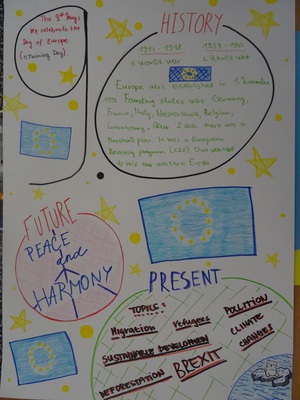 The 9th May,
we celebrate the
Day of Europe
HISTORY
1914 - 1918
1939 - 1945
1 WORLD WAR
2 WORLD WAR
Europe was established in 1. November
1993. Founding states was Germany,
France, Italy, Netherlands, Belgium,
Luxembourg. After 2. WW. there was a
Marshall plan. It was a European
Recovery program
FUTURE
PEACE
and
HARMONY
PRESENT
TOPICS:
Migration
refugees
POLLUTION
SUSTAINABLE DEVELOPMENT
CLIMATE
CHANGES
DEFORESTATION
BREXIT